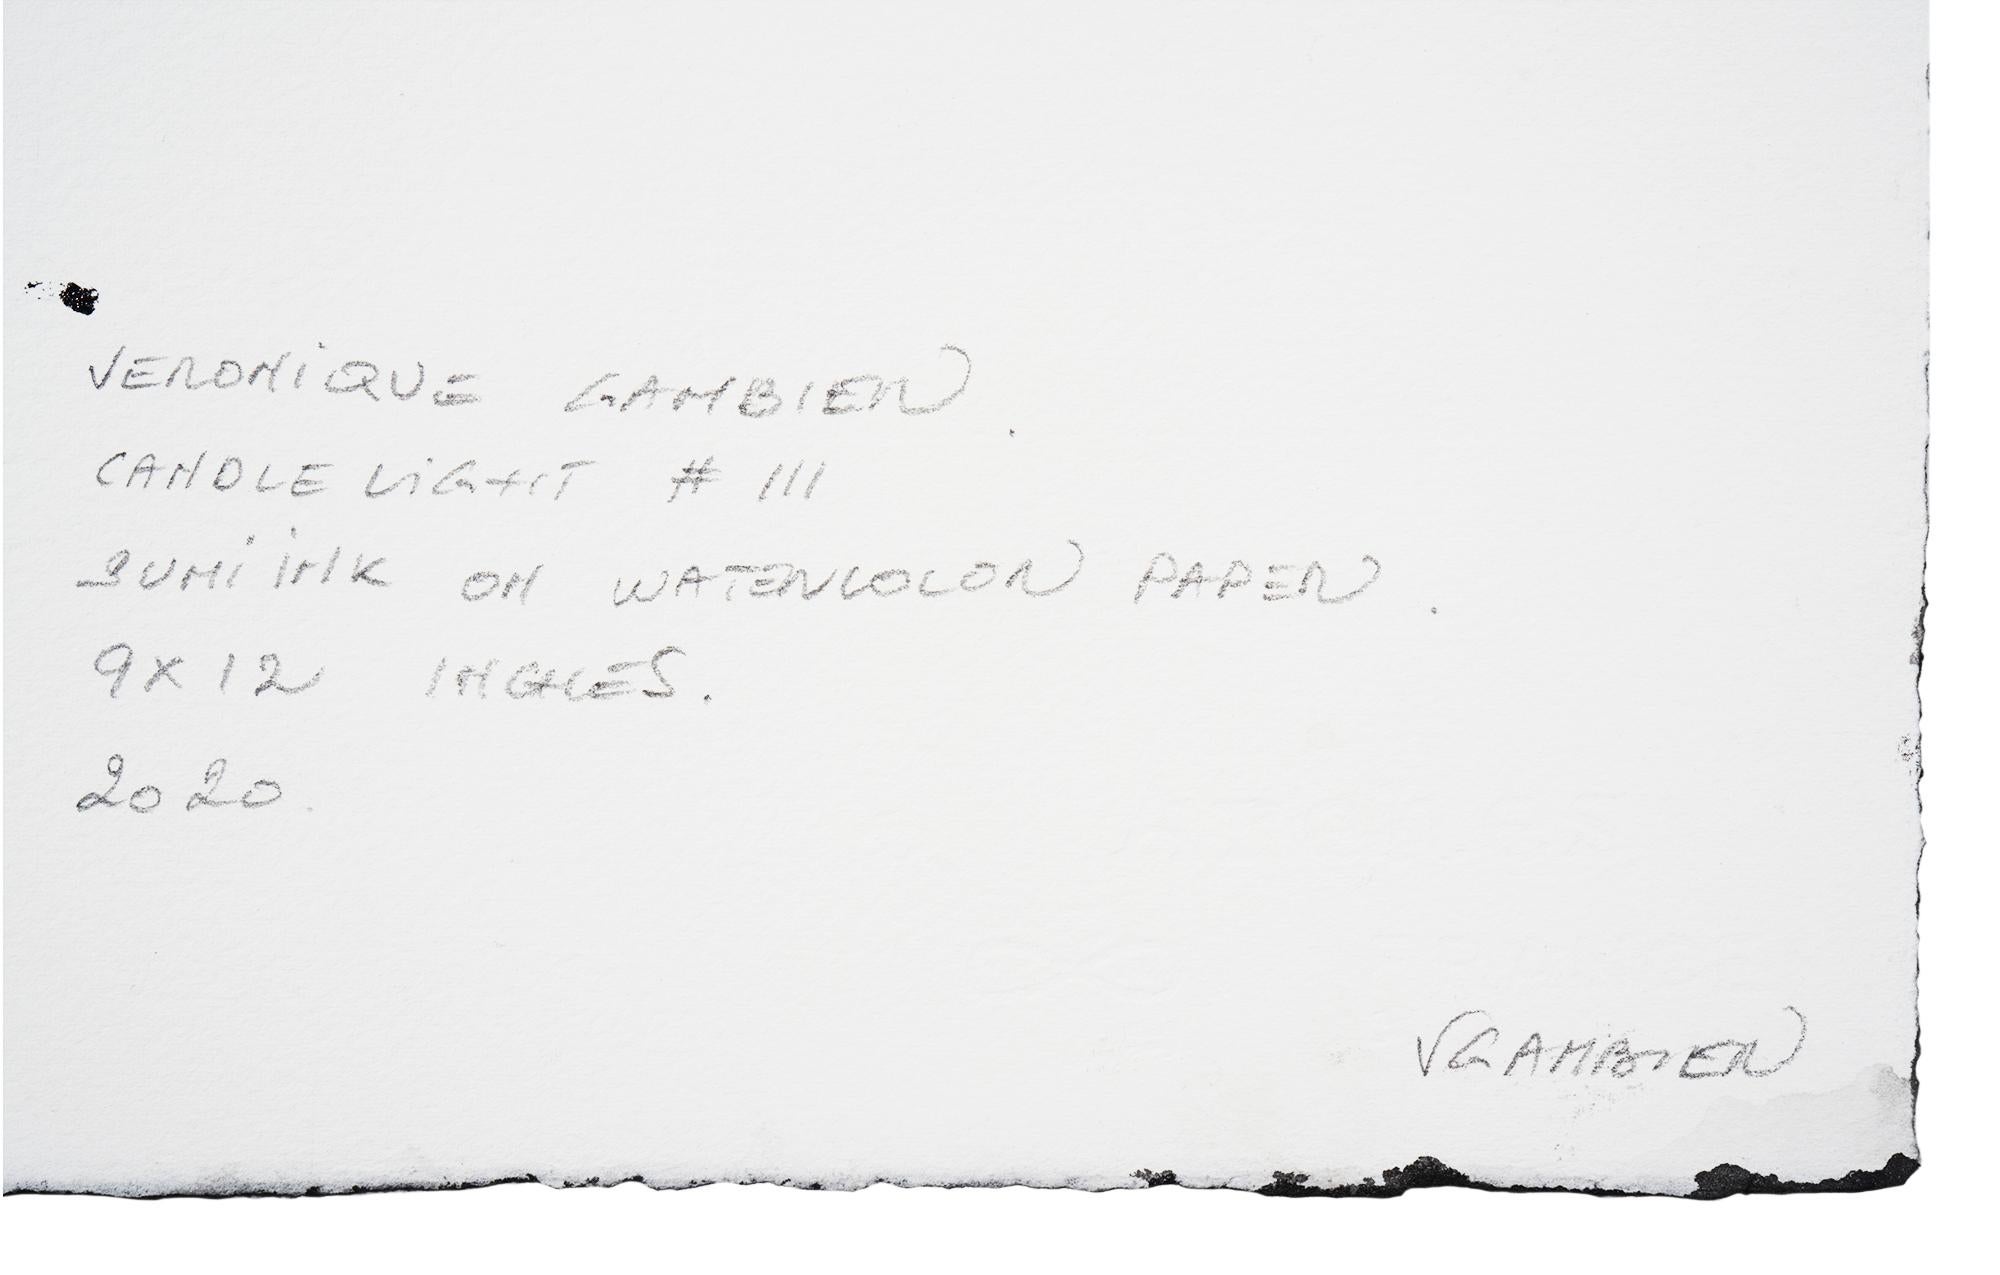 VERONiQUE GAMBIER.
CANDLE LiGHT # III
SUMi iNK ON WATERCOLOR PAPER.
9x12 INCHES.
2020.
VGAMBIER